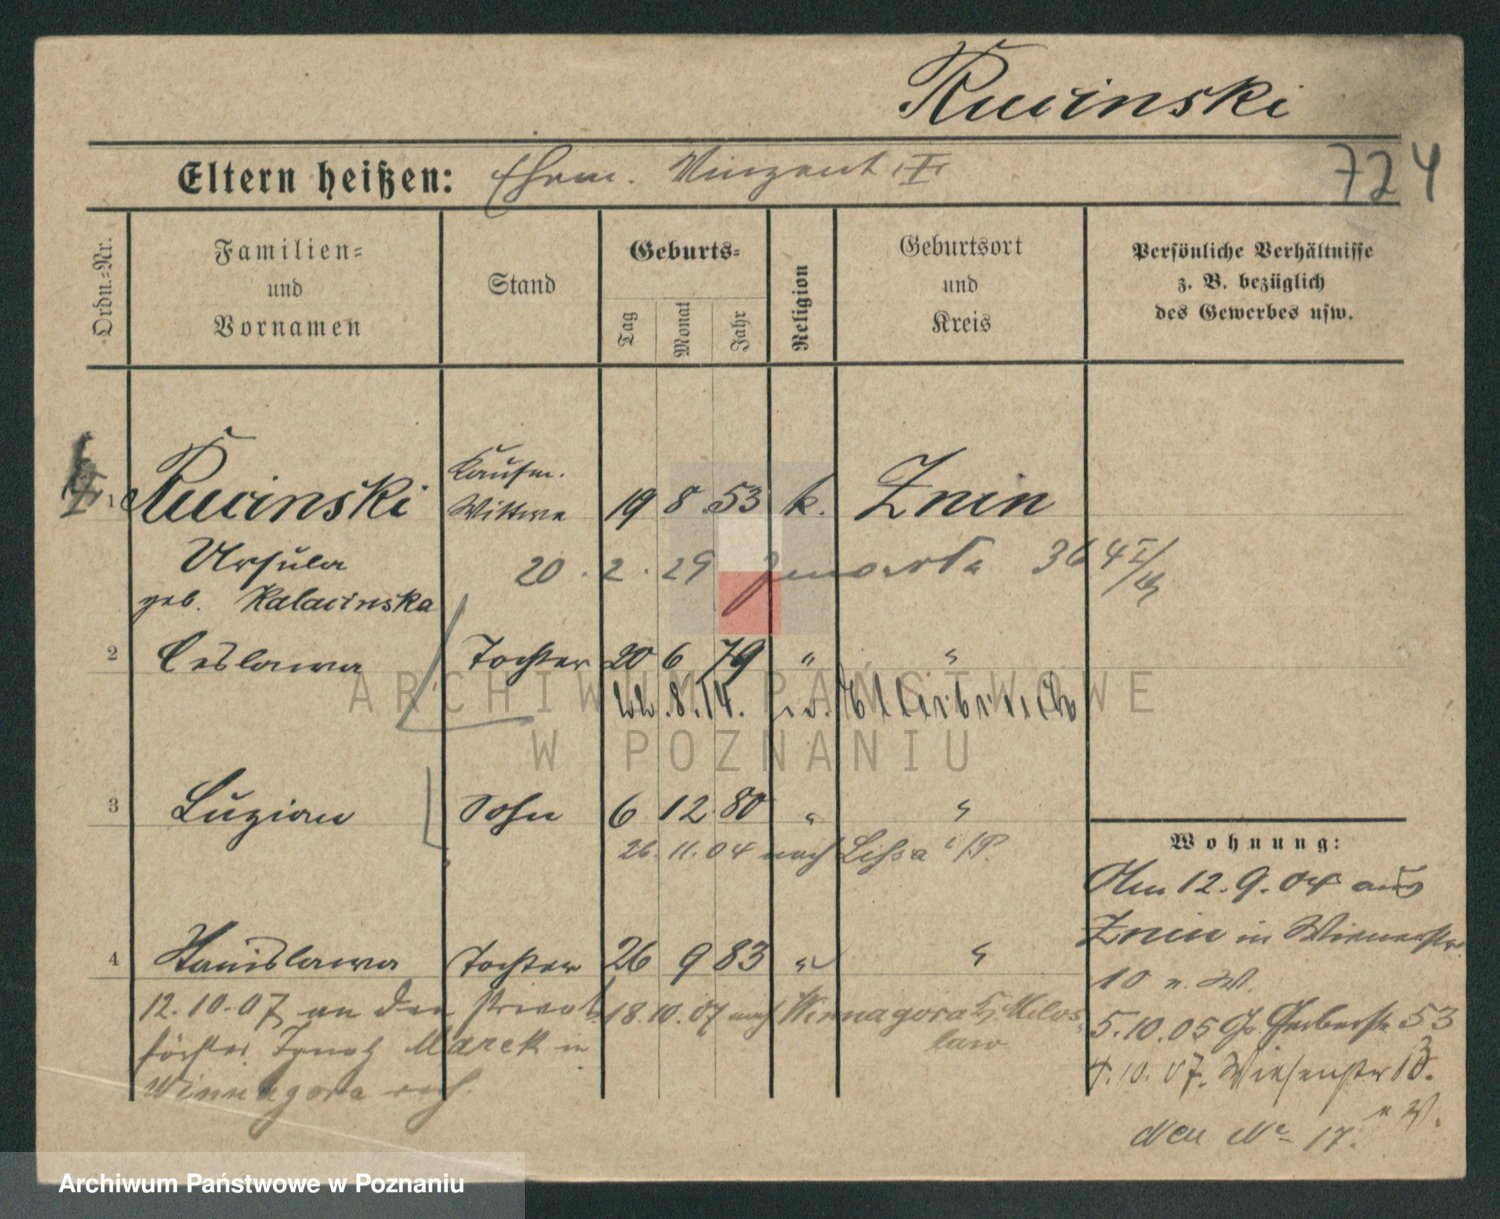 Rucinski
Eltern heißen: Ehem. Vinzent (†)
724
Ordn.=Nr.
Familien=
und
Vornamen
Stand
Geburts=
Tag
Monat
Jahr
Religion
Geburtsort
und
Kreis
Persönliche Verhältnisse
z. B. bezüglich
des Gewerbes usw.
1 Rucinski Kaufm. Wittwe 19 8 53 k. Znin
Ursula 20. 2. 29 zmarła 364
geb. Kalacinska
2 Ceslawa Tochter 20 6 79 " "
22.8.14.
3 Luzian Sohn 6 12 80 " "
26. 11. 04 nach Lissa i/P.
4 Stanislawa Tochter 26 9 83 " "
12.10.07 an den Privat 18.10.07 nach Winnagora Milos
förster Ignatz Marek in law
Winnagora verh.
Wohnung:
Am 12.9.04 aus
Znin in Wienerstr.
10 n. W.
5.10.05 Gr. Gerberstr 53
4.10.07. Wiesenstr 13.
n W.
neu No 17.
ARCHIWUM PAŃSTWOWE
W POZNANIU
Archiwum Państwowe w Poznaniu